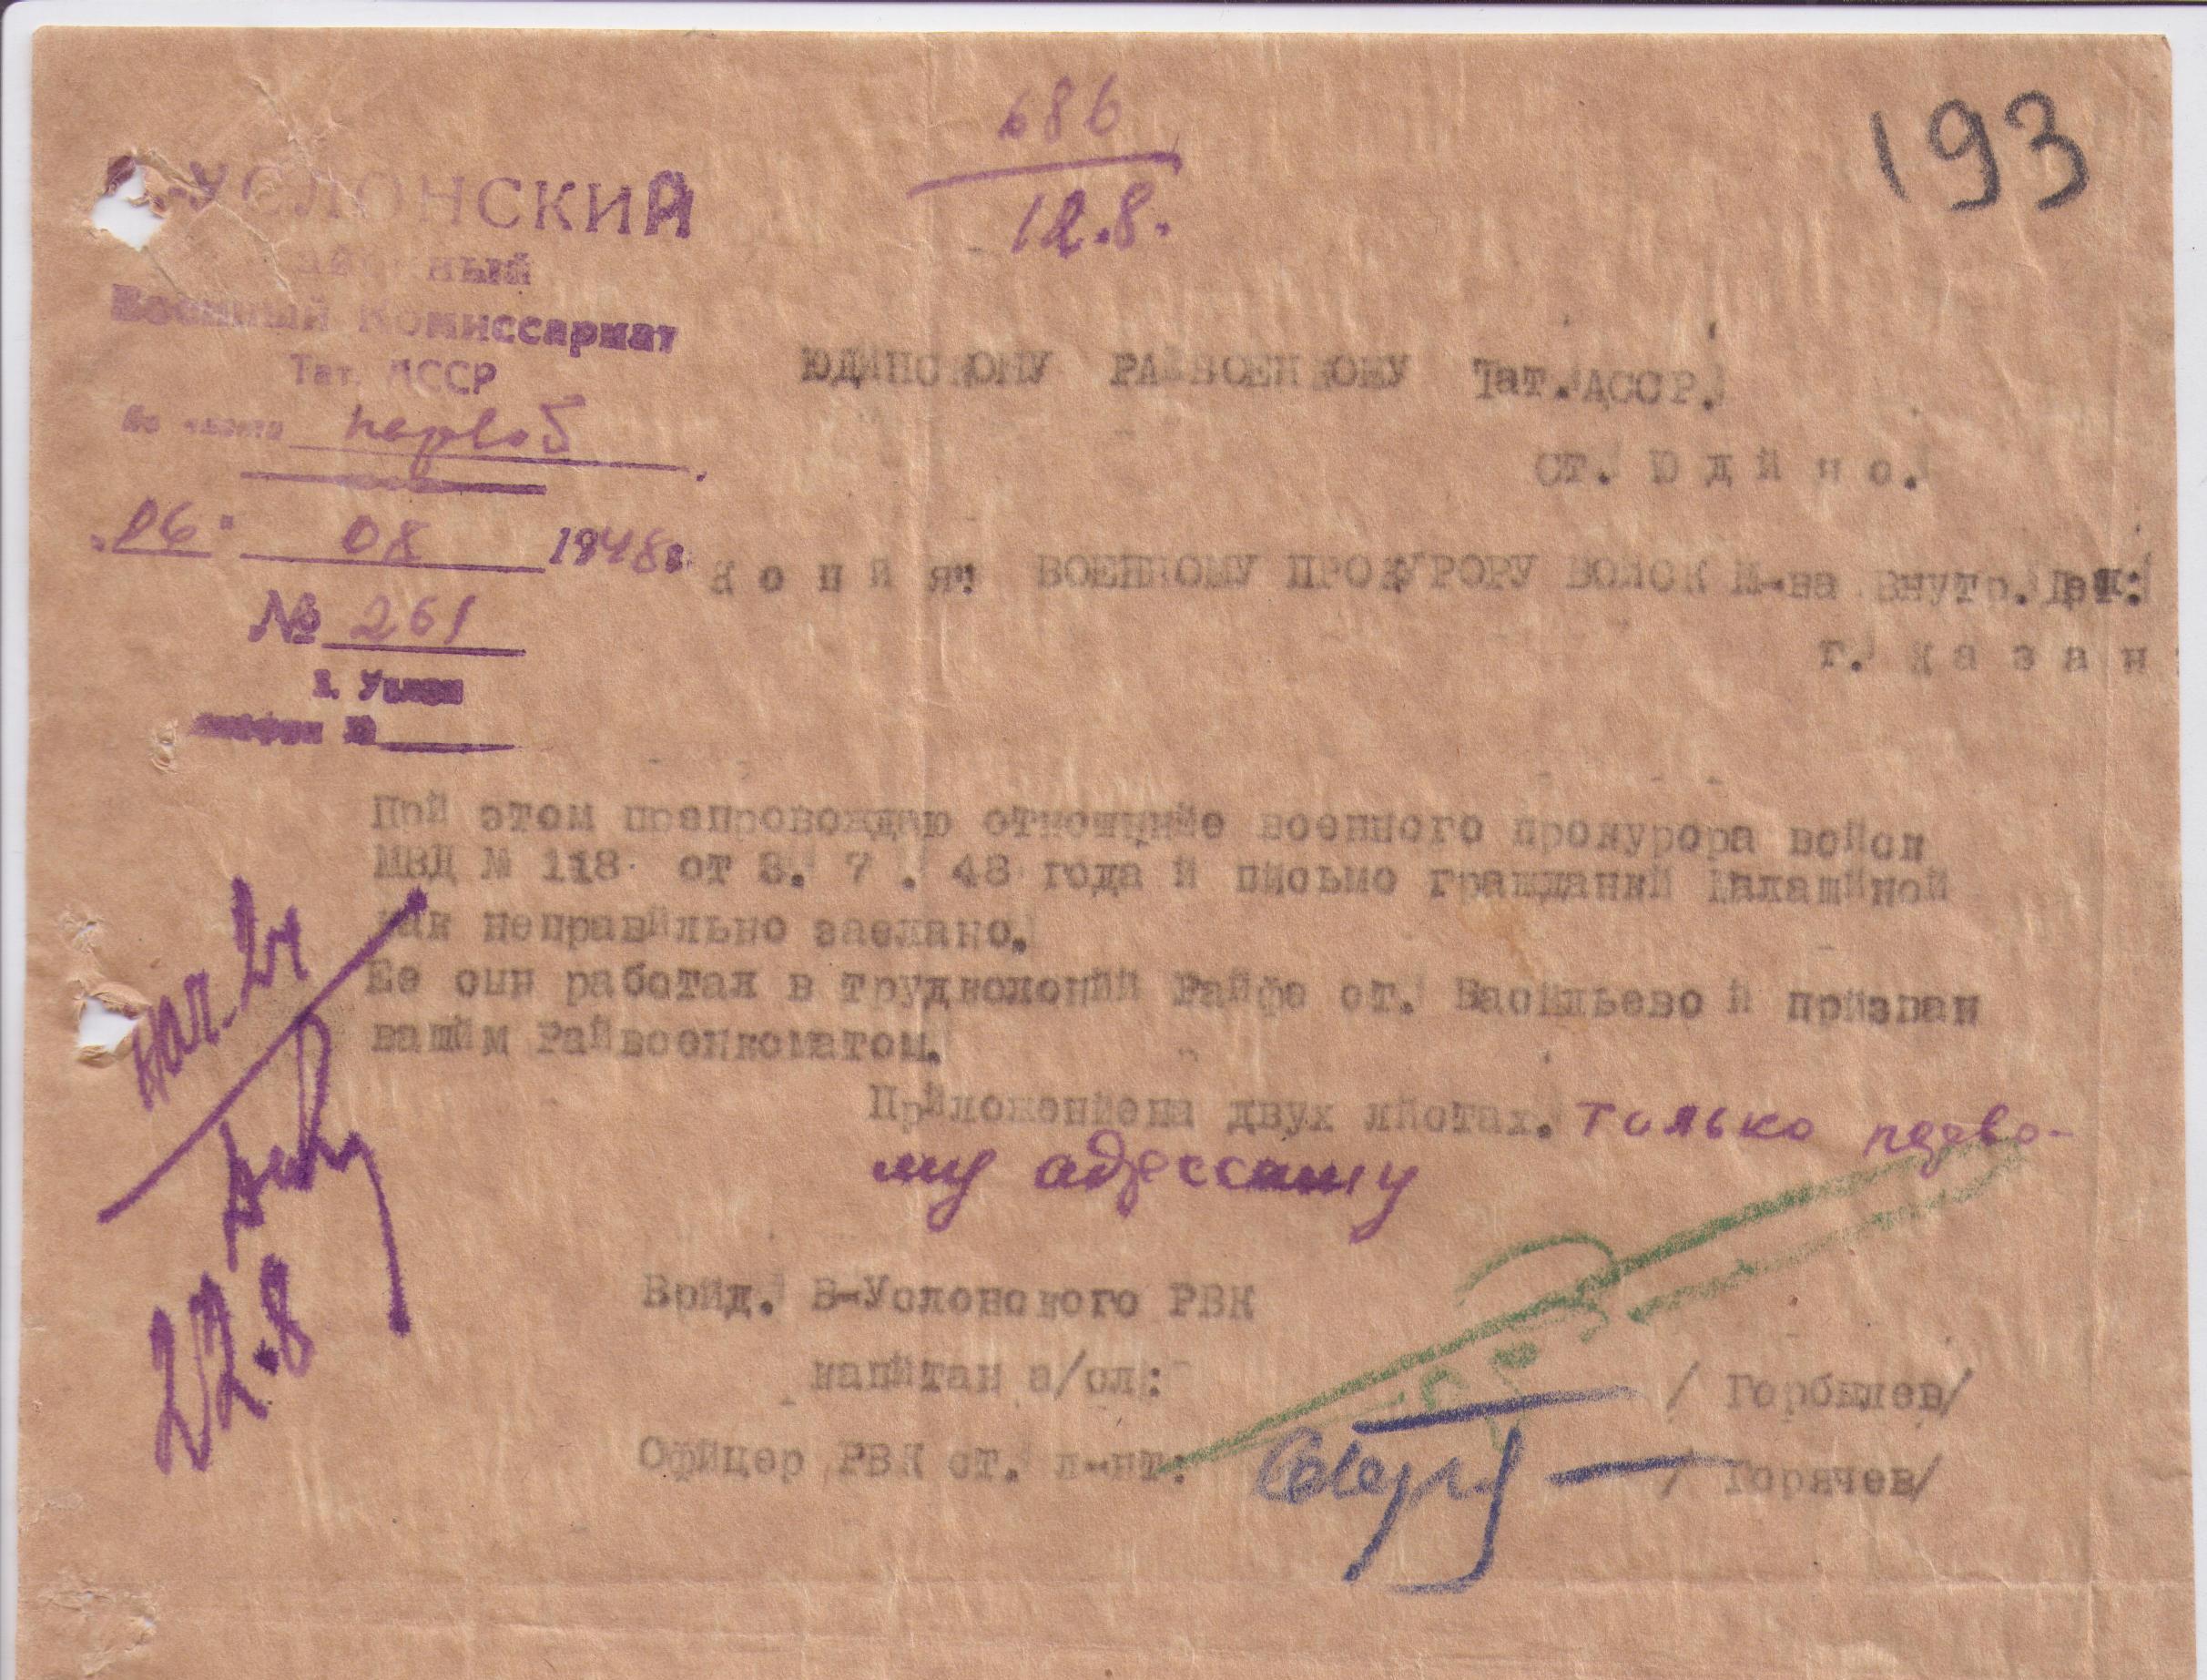 686
12.8.
193
-УСЛОНСКИЙ
Районный
Военный Комиссариат
Тат. АССР
По части первой
08 1948г.
№ 261
В. Услон
ЮДИНСКОМУ РАЙВОЕНКОМУ Тат. АССР.
ст. Ю д и н о.
К о п и я: ВОЕННОМУ ПРОКУРОРУ ВОЙСК М-ва Внутр. Дел:
г. К а з а н
При этом препровождаю отношение военного прокурора войск
МВД № 118 от 3. 7. 48 года и письмо гражданки Малашиной
как неправильно заслано.
Ее сын работал в трудколонии Райфе ст. Васильево и призван
вашим Райвоенкоматом.
Приложение на двух листах. только перво-
му адрессату
22.8
Врид. В-Услонского РВК
капитан а/сл: / Горбылев/
Офицер РВК ст. л-нт: / Горячев/